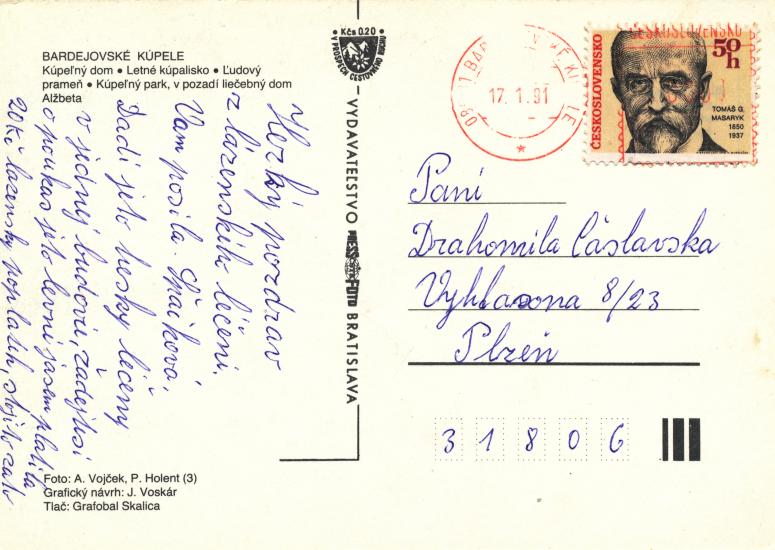 BARDEJOVSKÉ KÚPELE
Kúpeľný dom • Letné kúpalisko • Ľudový
prameň • Kúpeľný park, v pozadí liečebný dom
Alžbeta
Hezký pozdrav
z lázenského léčení.
Vam posila.
Dadi jeto hesky léčeny
v jednej budově,
o poukas jeto levní jasem platila
20Kč lazensky poplatek, stojito zato
Foto: A. Vojček, P. Holent (3)
Grafický návrh: J. Voskár
Tlač: Grafobal Skalica
Kčs 0.20
V PROSPECH CESTOVNÉHO RUCHU
VYDAVATEĽSTVO PRESSFOTO BRATISLAVA
17.1.91
ČESKOSLOVENSKO
50 h
TOMÁŠ G.
MASARYK
1850
1937
ČESKOSLOVENSKO
Paní
Drahomila Cáslavska
8/23
Plzeň
31806